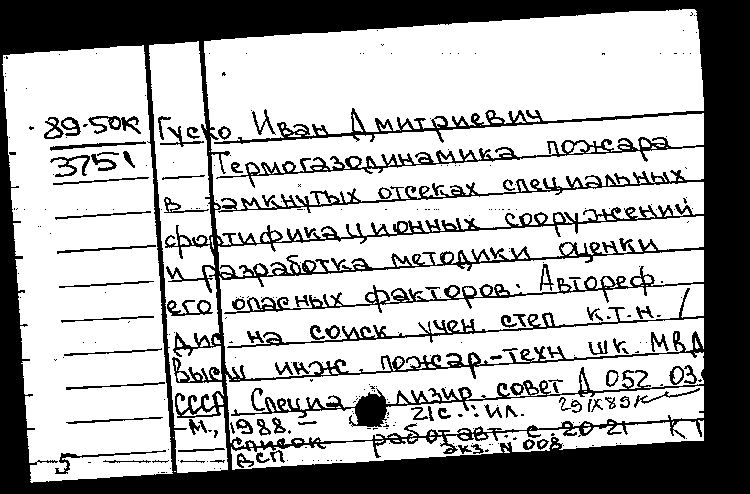 89-50К Гуско, Иван Дмитриевич
3751 Термогазодинамика пожара
в замкнутых отсеках специальных
фортификационных сооружений
и разработка методики оценки
его опасных факторов: Автореф.
дис. на соиск. учен. степ. к.т.н. /
Высш. инж. пожар.-техн. шк. МВД
СССР. Специализир. совет Д 052.03.
М., 1988. – 21с.: ил. 29IX89К
Список работ авт.: с. 20-21 КТ
5 ВСП экз. N 008